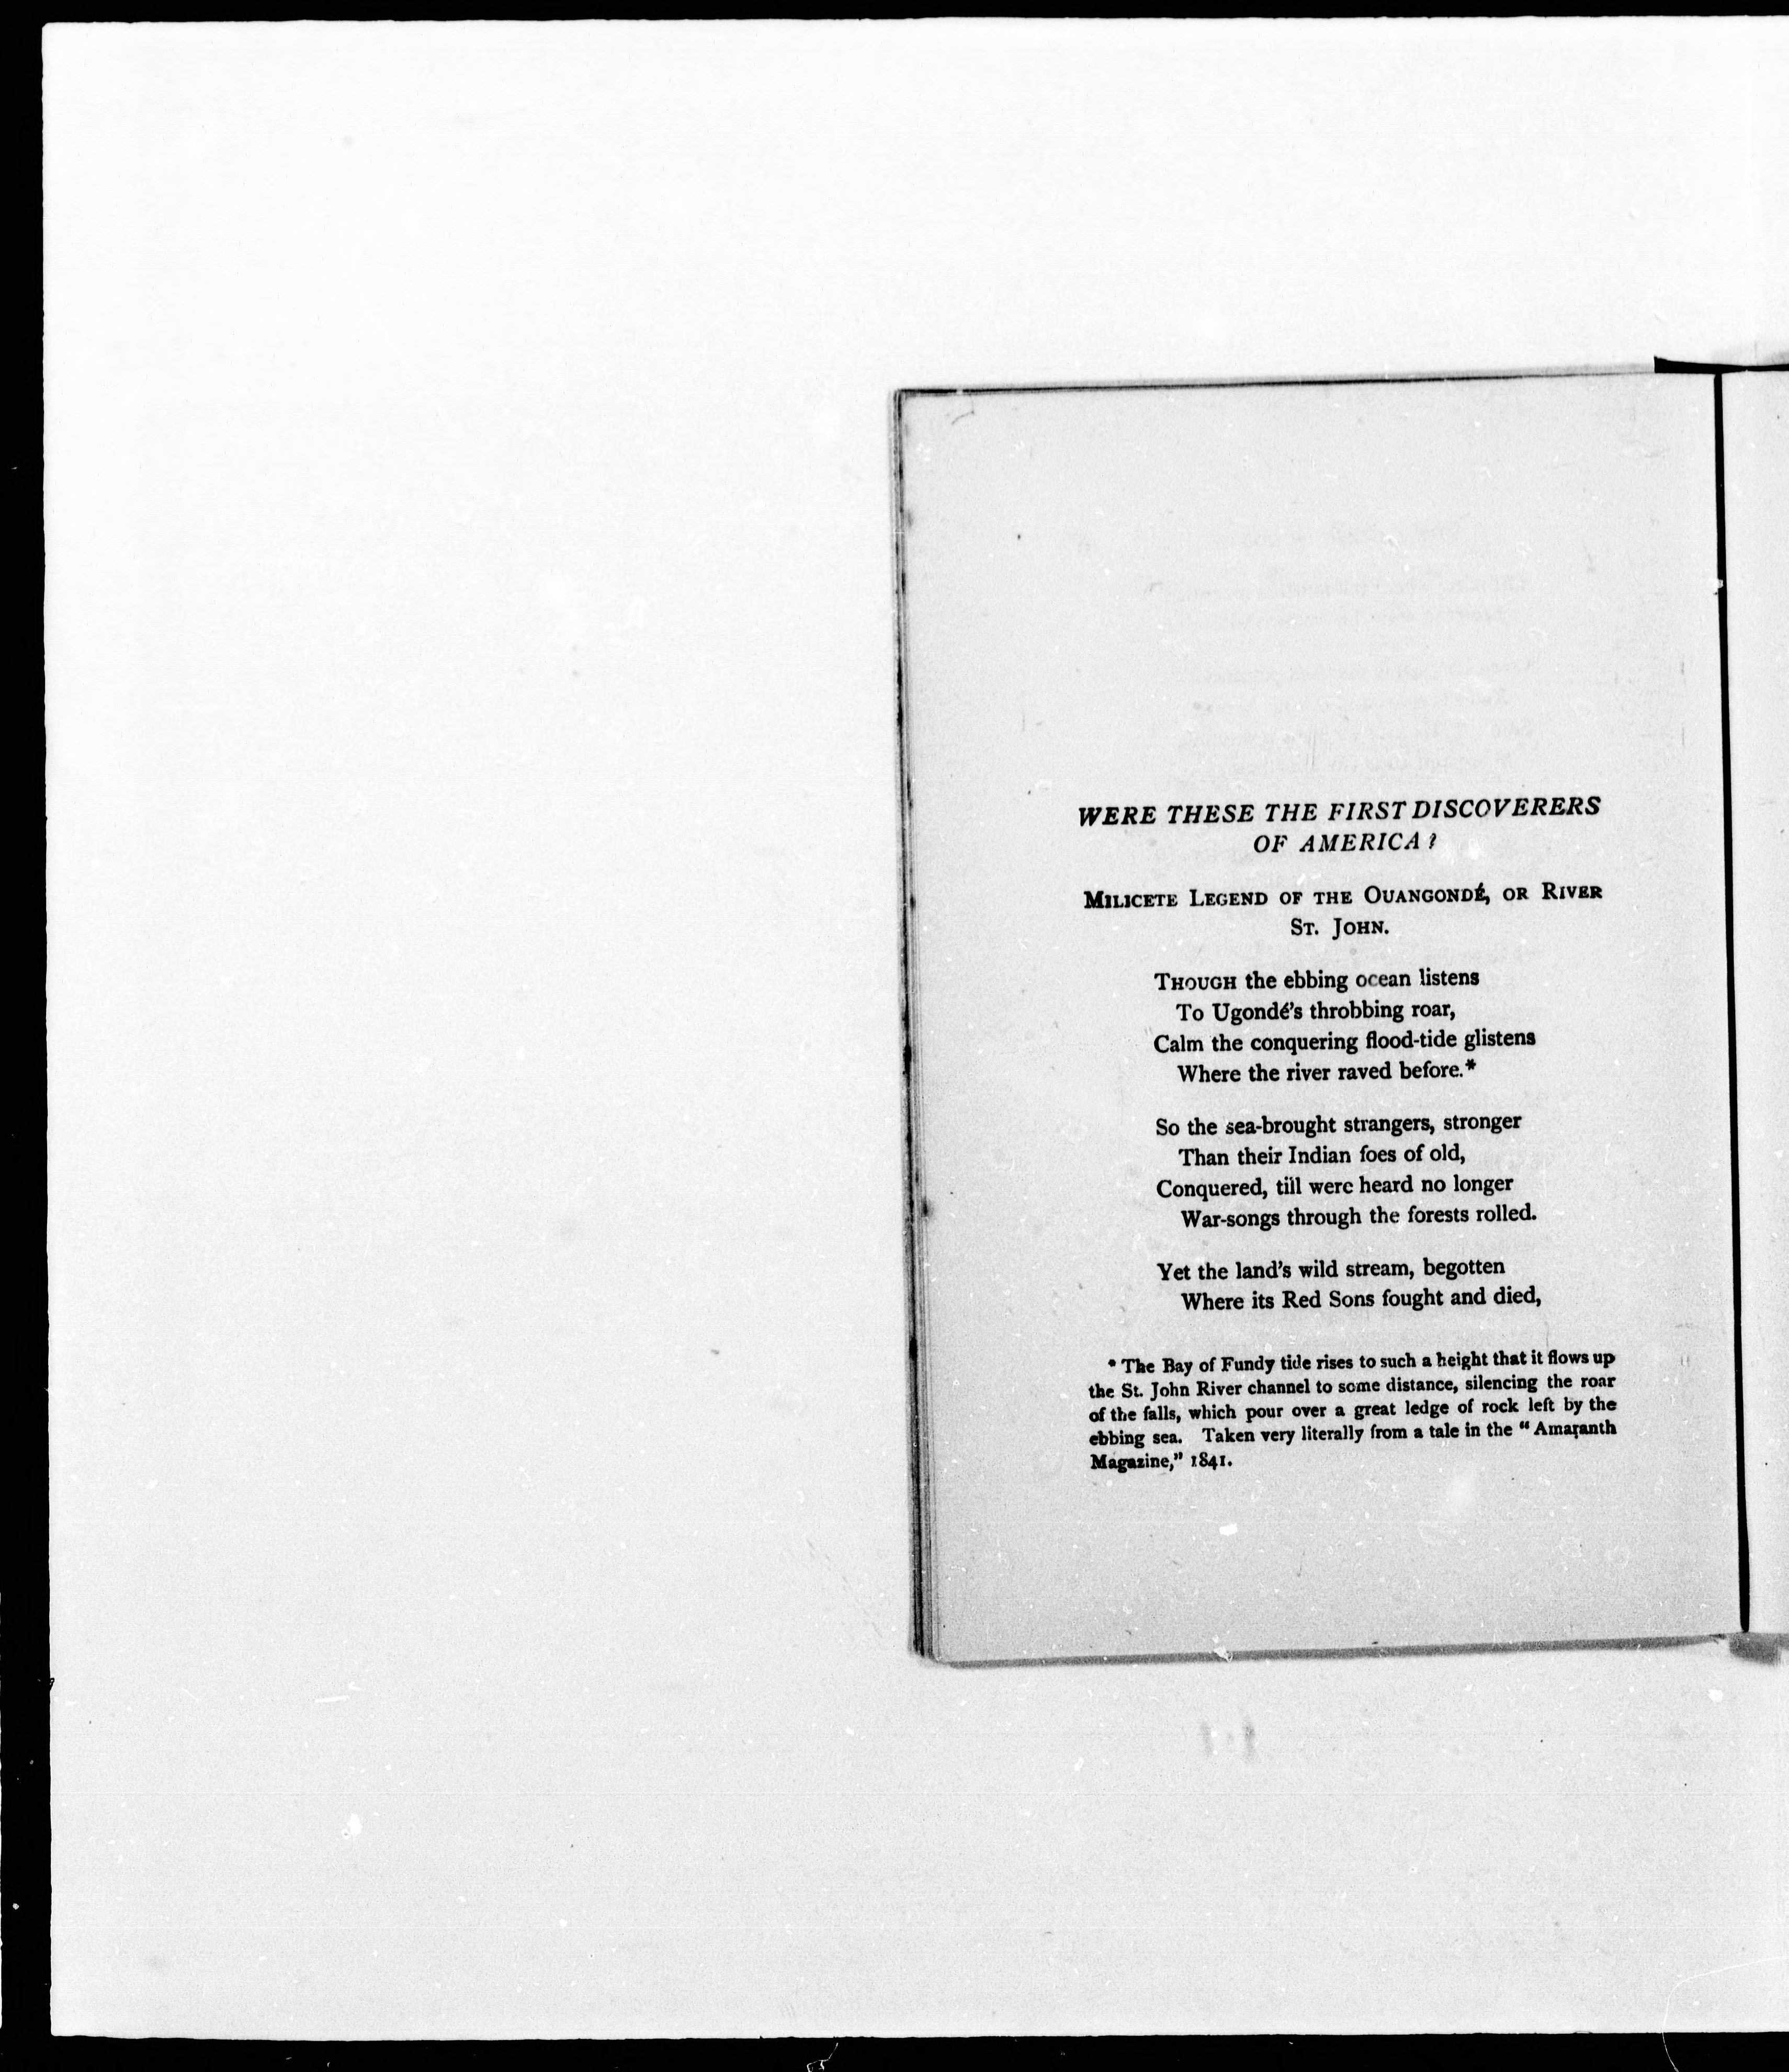 WERE THESE THE FIRST DISCOVERERS
OF AMERICA?
MILICETE LEGEND OF THE OUANGONDÉ, OR RIVER
ST. JOHN.
THOUGH the ebbing ocean listens
To Ugondé's throbbing roar,
Calm the conquering flood-tide glistens
Where the river raved before.*
So the sea-brought strangers, stronger
Than their Indian foes of old,
Conquered, till were heard no longer
War-songs through the forests rolled.
Yet the land's wild stream, begotten
Where its Red Sons fought and died,
* The Bay of Fundy tide rises to such a height that it flows up
the St. John River channel to some distance, silencing the roar
of the falls, which pour over a great ledge of rock left by the
ebbing sea. Taken very literally from a tale in the "Amaranth
Magazine," 1841.